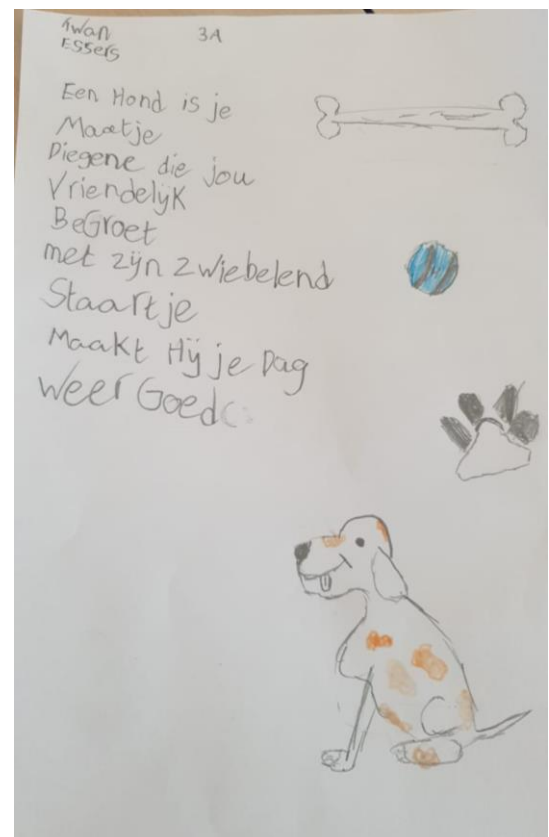 Twan 3A
Essers
Een Hond is je
Maatje
Diegene die jou
Vriendelijk
BeGroet
met zijn zwiebelend
Staartje
Maakt Hij je Dag
weer Goed